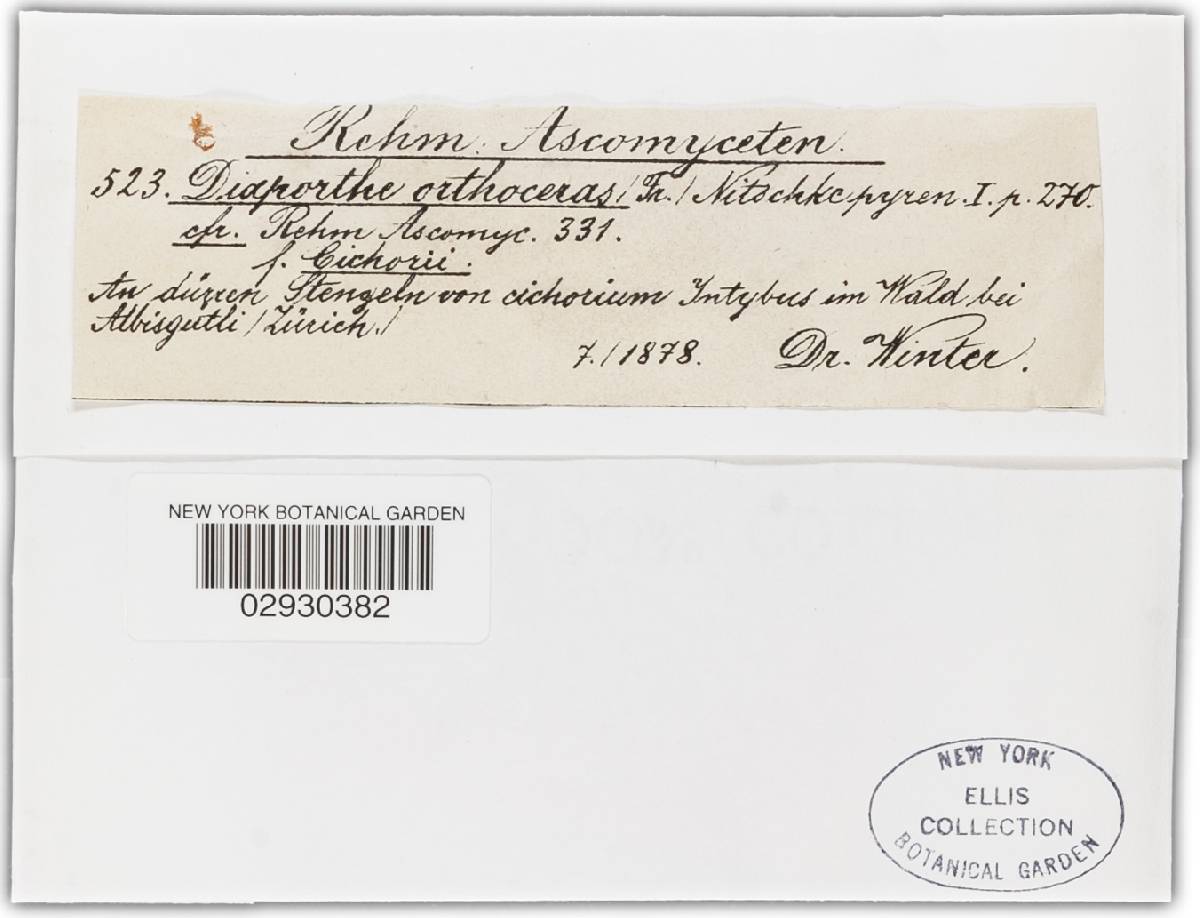 Rehm. Ascomyceten.
523. Diaporthe orthoceras /Fr./ Nitschke pyren. I. p. 270.
cfr. Rehm Ascomyc. 331.
f. Cichorii.
An dürren Stengeln von cichorium Intybus im Wald bei
Albisgutli /Zürich./
7./1878. Dr. Winter.
NEW YORK BOTANICAL GARDEN
02930382
NEW YORK
ELLIS
COLLECTION
BOTANICAL GARDEN